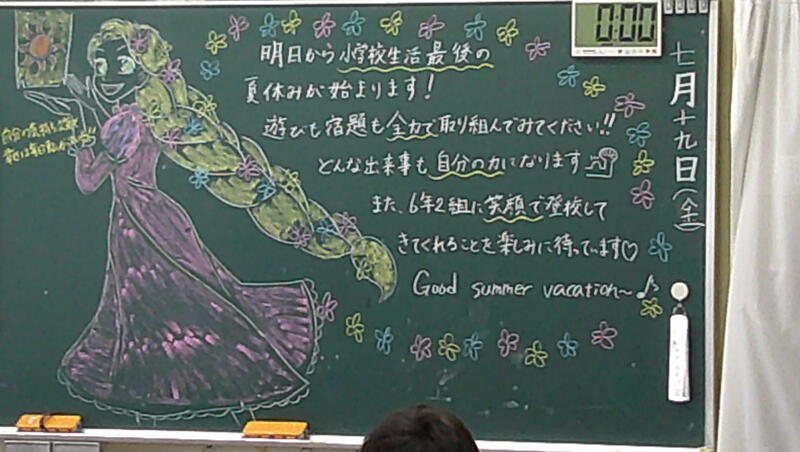 明日から小学校生活最後の
夏休みが始まります！
遊びも宿題も全力で取り組んでみてください!!
どんな出来事も自分の力になります
また、6年2組に笑顔で登校して
きてくれることを楽しみに待っています♡
Good summer vacation〜♪
七月十九日(金)
0:00